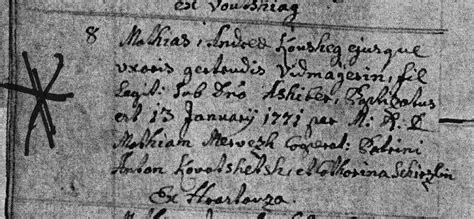 est Voutshiag
8 Mathias, Andreæ Kousheg ejusque
uxoris gertrudis Vidmajerin, fil
Legit: sub Dno Ashiker, Baptizatus
est 13 January 1771 par M: A: D
Mathiam Mervezh Cooperat: Patrini
Anton Kovatshetsh, et Catharina
Ex Hrastouza.